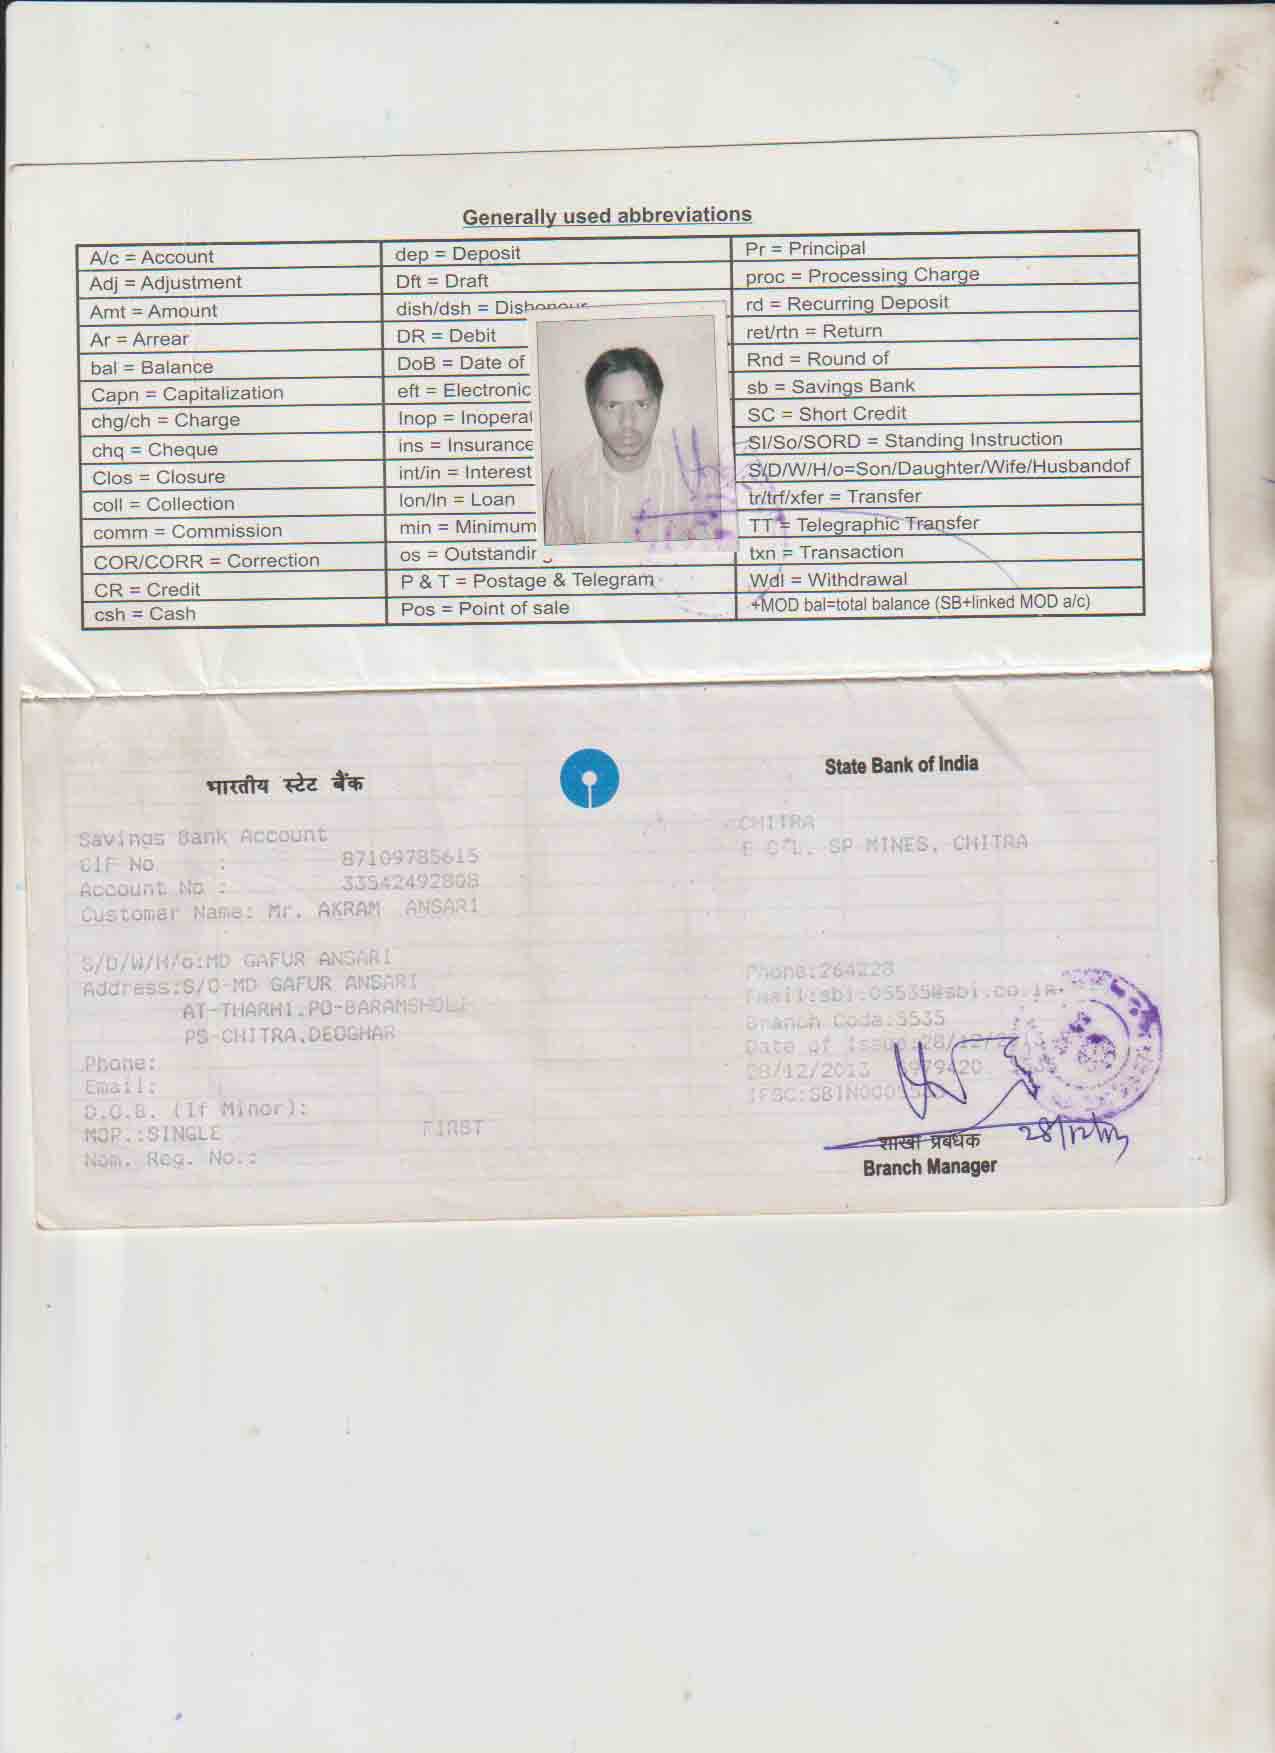 Generally used abbreviations
A/c = Account
Adj = Adjustment
Amt = Amount
Ar = Arrear
bal = Balance
Capn = Capitalization
chg/ch = Charge
chq = Cheque
Clos = Closure
coll = Collection
comm = Commission
COR/CORR = Correction
CR = Credit
csh = Cash
dep = Deposit
Dft = Draft
dish/dsh = Dishonour
DR = Debit
DoB = Date of
eft = Electronic
Inop =
ins = Insurance
int/in = Interest
lon/ln = Loan
min = Minimum
os =
P & T = Postage & Telegram
Pos = Point of sale
Pr = Principal
proc = Processing Charge
rd = Recurring Deposit
ret/rtn = Return
Rnd = Round of
sb = Savings Bank
SC = Short Credit
SI/So/SORD = Standing Instruction
S/D/W/H/o=Son/Daughter/Wife/Husbandof
tr/trf/xfer = Transfer
TT = Telegraphic Transfer
txn = Transaction
Wdl = Withdrawal
+MOD bal=total balance (SB+linked MOD a/c)
भारतीय स्टेट बैंक
Savings Bank Account
CIF No : 87109785615
Account No : 33542492808
Customer Name: Mr. AKRAM ANSARI
S/D/W/H/o:MD GAFUR ANSARI
Address:S/O-MD GAFUR ANSARI
AT-THARHI,PO-
PS-CHITRA,DEOGHAR
Phone:
Email:
D.O.B. (If Minor):
MOP.:SINGLE FIRST
Nom. Reg. No.:
State Bank of India
CHITRA
SP MINES, CHITRA
Phone:264228
Email:sbi.05535@sbi.co.in
Branch Code:5535
Date of Issue:28/12/
28/12/2013
शाखा प्रबंधक 28/12/13
Branch Manager